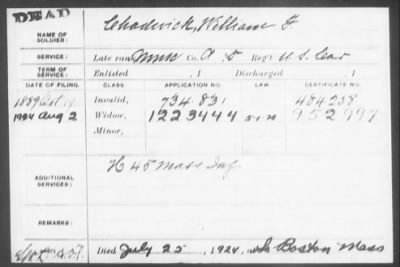 DEAD
NAME OF SOLDIER: Chadwick, William F.
SERVICE: Late rank, Co. Reg't U.S. Cav
TERM OF SERVICE: Enlisted , 1 Discharged , 1
DATE OF FILING. CLASS. APPLICATION NO. LAW CERTIFICATE NO.
1889 Oct 19 Invalid, 734.831 484258
1924 Aug 2 Widow, 1223444 952997
Minor,
ADDITIONAL SERVICES: H 45 Mass Inf.
REMARKS:
Died July 25, 1924, Boston Mass